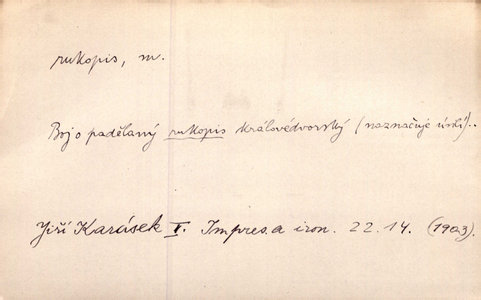 rukopis, m.
Boj o padělaný rukopis královédvorský (naznačuje úskí)..
Jiří Karásek I. Impres. a iron. 22.14. (1903).